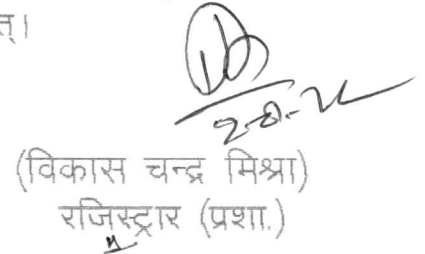 त्।
(विकास चन्द्र मिश्रा)
रजिस्ट्रार (प्रशा.)